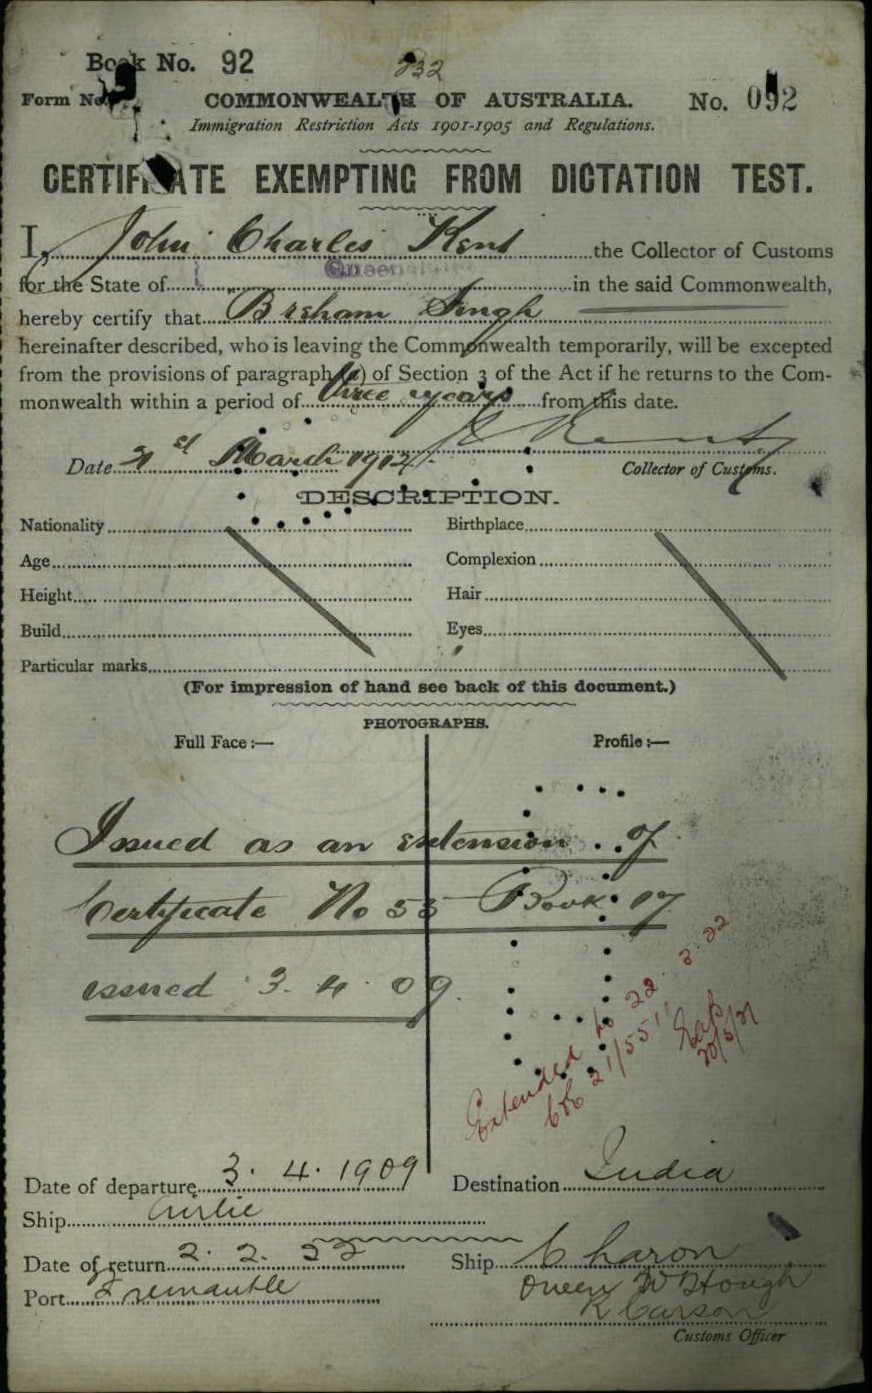 Book No. 92
232
Form No.
COMMONWEALTH OF AUSTRALIA.
No. 092
Immigration Restriction Acts 1901-1905 and Regulations.
CERTIFICATE EXEMPTING FROM DICTATION TEST.
I, John Charles Kent the Collector of Customs
for the State of Queensland in the said Commonwealth,
hereby certify that Bisham Singh
hereinafter described, who is leaving the Commonwealth temporarily, will be excepted
from the provisions of paragraph (a) of Section 3 of the Act if he returns to the Com-
monwealth within a period of three years from this date.
Date March
Collector of Customs.
DESCRIPTION.
Nationality
Birthplace
Age
Complexion
Height
Hair
Build
Eyes
Particular marks
(For impression of hand see back of this document.)
PHOTOGRAPHS.
Full Face :—
Profile :—
Issued as an extension of
Certificate No 55 Book 17
issued 3. 4. 09.
Extended to 22. 3. 22
21/551
20/5/21
Date of departure 3. 4. 1909
Destination India
Ship Airlie
Date of return 2. 2. 22
Ship Charon
Port Fremantle
Owen W Hough
R Carson
Customs Officer